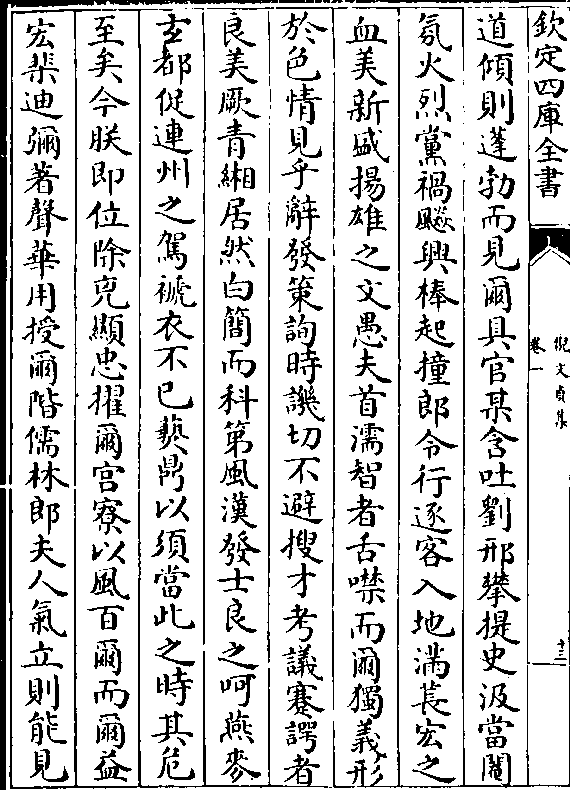 欽定四庫全書
倪文貞集
卷一
十三
道傾則蓬勃而見爾具官某含吐劉邢攀提史汲當闍
氛火烈黨禍飈興棒起撞郎令行逐客入地滿萇宏之
血美新盛揚雄之文愚夫首濡智者舌噤而爾獨義形
於色情見乎辭發策詢時譏切不避搜才考議蹇諤者
良美厥青緗居然白簡而科第風漢發士良之呵燕麥
玄都促連州之駕褫衣不已爇鼎以須當此之時其危
至矣今朕即位除兇顯忠擢爾宮寮以風百爾而爾益
宏棐迪彌著聲華用授爾階儒林郎夫人氣立則能見